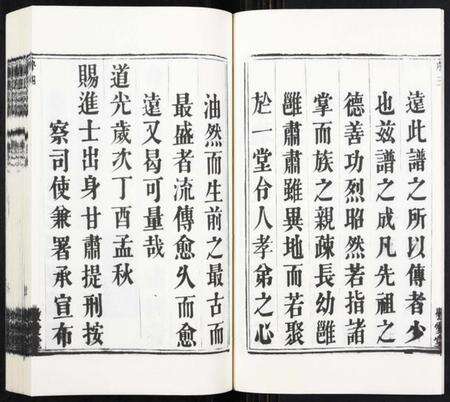 遠此譜之所以傳者少
也茲譜之成凡先祖之
德善功烈昭然若指諸
掌而族之親疎長幼雝
雝肅肅雖異地而若聚
於一堂令人孝弟之心
油然而生前之最古而
最盛者流傳愈久而愈
遠又曷可量哉
道光歲次丁酉孟秋
賜進士出身甘肅提刑按
察司使兼署承宣布